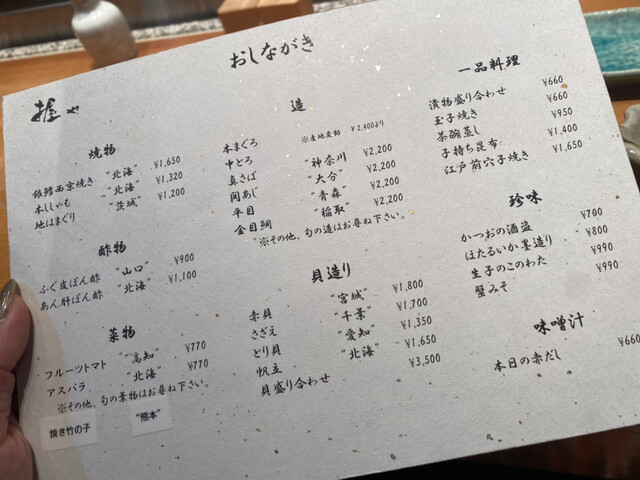 おしながき
握や
焼物
銀鱈西京焼き "北海" ¥1,650
本ししゃも "北海" ¥1,320
地はまぐり "茨城" ¥1,200
酢物
ふぐ皮ぽん酢 "山口" ¥900
あん肝ぽん酢 "北海" ¥1,100
菜物
フルーツトマト "高知" ¥770
アスパラ "北海" ¥770
※その他、旬の菜物はお尋ね下さい。
焼き竹の子 "熊本"
造
本まぐろ ※産地変動 ¥2,400より
中とろ
真さば "神奈川" ¥2,200
関あじ "大分" ¥2,200
平目 "青森" ¥2,200
金目鯛 "稲取" ¥2,200
※その他、旬の造はお尋ね下さい。
貝造り
赤貝 "宮城" ¥1,800
さざえ "千葉" ¥1,700
とり貝 "愛知" ¥1,350
帆立 "北海" ¥1,650
貝盛り合わせ ¥3,500
一品料理
漬物盛り合わせ ¥660
玉子焼き ¥660
茶碗蒸し ¥950
子持ち昆布 ¥1,400
江戸前穴子焼き ¥1,650
珍味
かつおの酒盗 ¥700
ほたるいか墨造り ¥800
生子のこのわた ¥990
蟹みそ ¥990
味噌汁
本日の赤だし ¥660